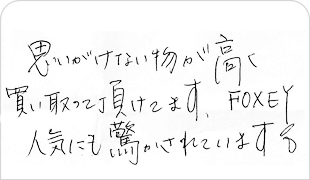 思いがけない物が高く
買い取って頂けてます、FOXEY
人気にも驚かされています